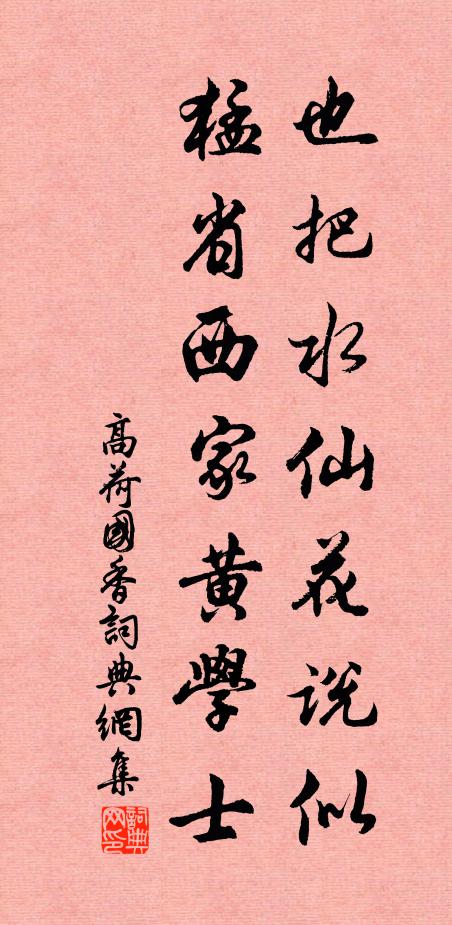 也把水仙花说似
猛省西家黄學士
高荷國香詞典網集
詞典网印